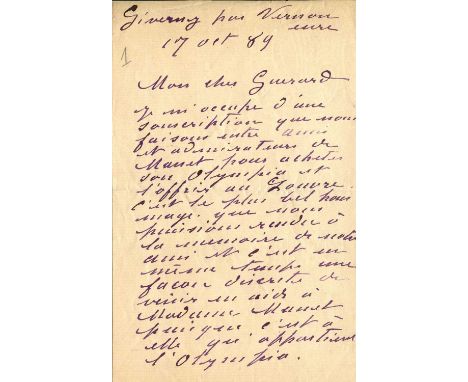 Giverny par Vernon
eure
17 oct 89
1
Mon cher Guerard
Je m'occupe d'une
souscription que nous
faisons entre amis
et admirateurs de
Manet pour acheter
son Olympia et
l'offrir au Louvre.
c'est le plus bel hom
mage que nous
puissions rendre à
la memoire de notre
ami et c'est en
même temps une
façon discrète de
venir en aide à
Madame Manet
puisque c'est à
elle qu'appartient
l'Olympia.